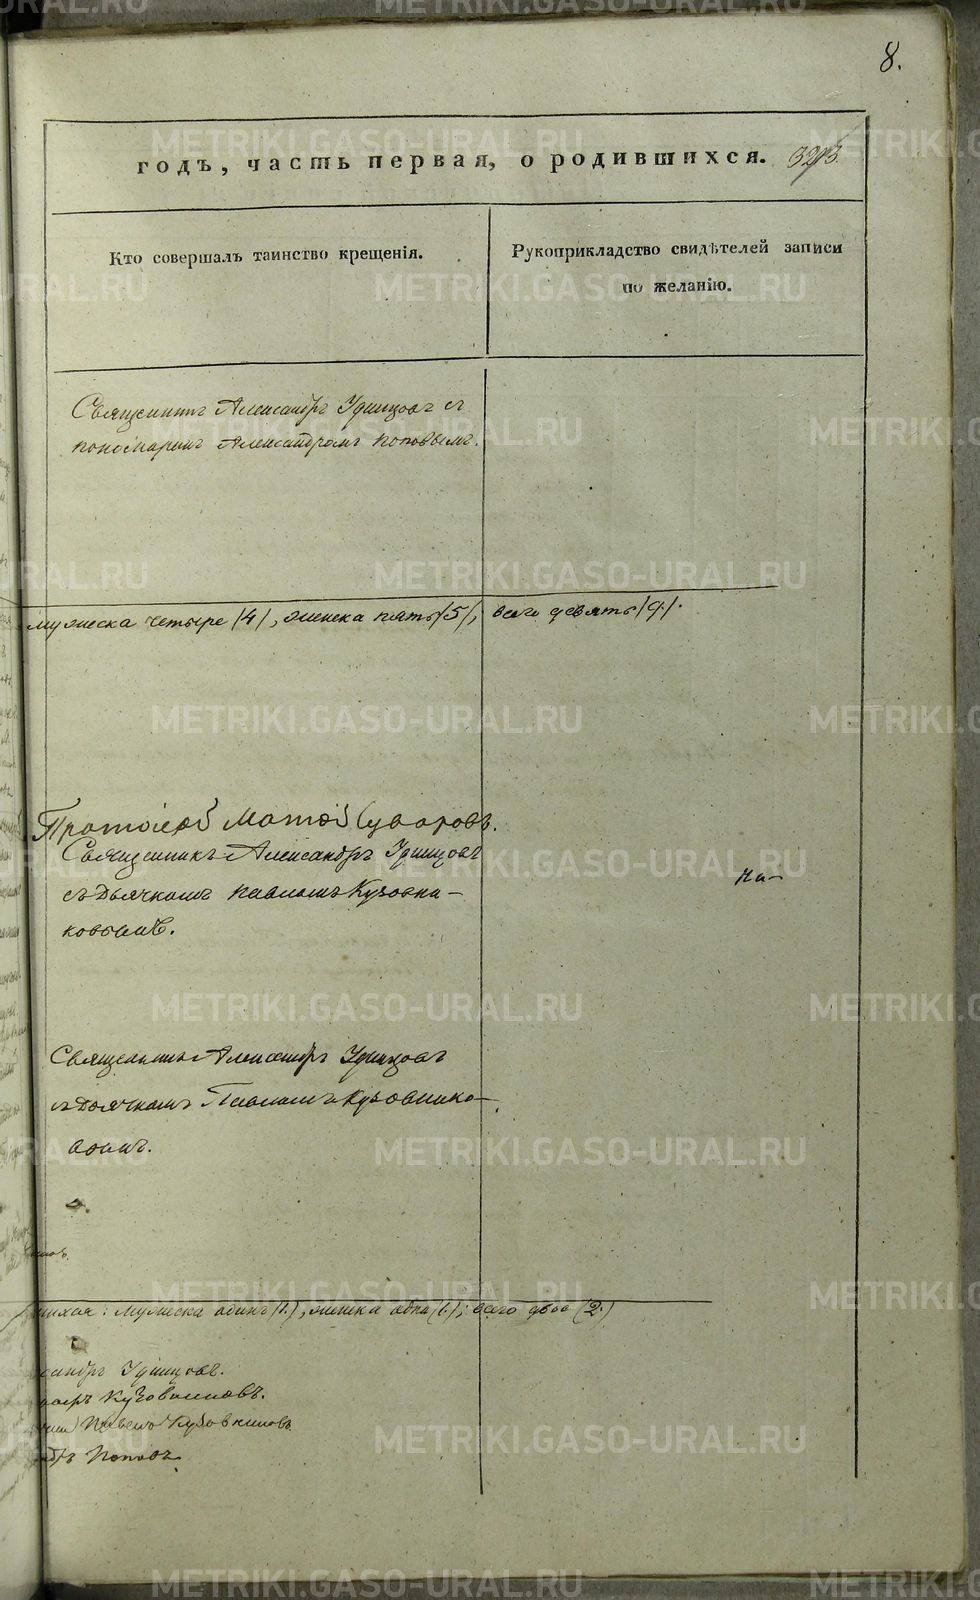 8.
годъ, часть первая, о родившихся.
Кто совершалъ таинство крещенія.
Рукоприкладство свидѣтелей записи
по желанію.
Священникъ Александръ Удинцовъ съ
пономаремъ Александромъ Поповымъ.
мужеска четыре /4/, женска пять /5/, всего девять /9/.
Протоіерей Матѳей Суворовъ.
Священникъ Александръ Удинцовъ
съ Дьячкомъ Павломъ Кузовни-
ковымъ.
На-
Священникъ Александръ Удинцовъ
съ Дьячкомъ Павломъ Кузовнико-
вымъ.
мужеска одинъ (1.), женска одна (1.); всего двое (2.)
сандръ Удинцовъ.
Кузовниковъ.
Павелъ Кузовниковъ.
Поповъ.
METRIKI.GASO-URAL.RU